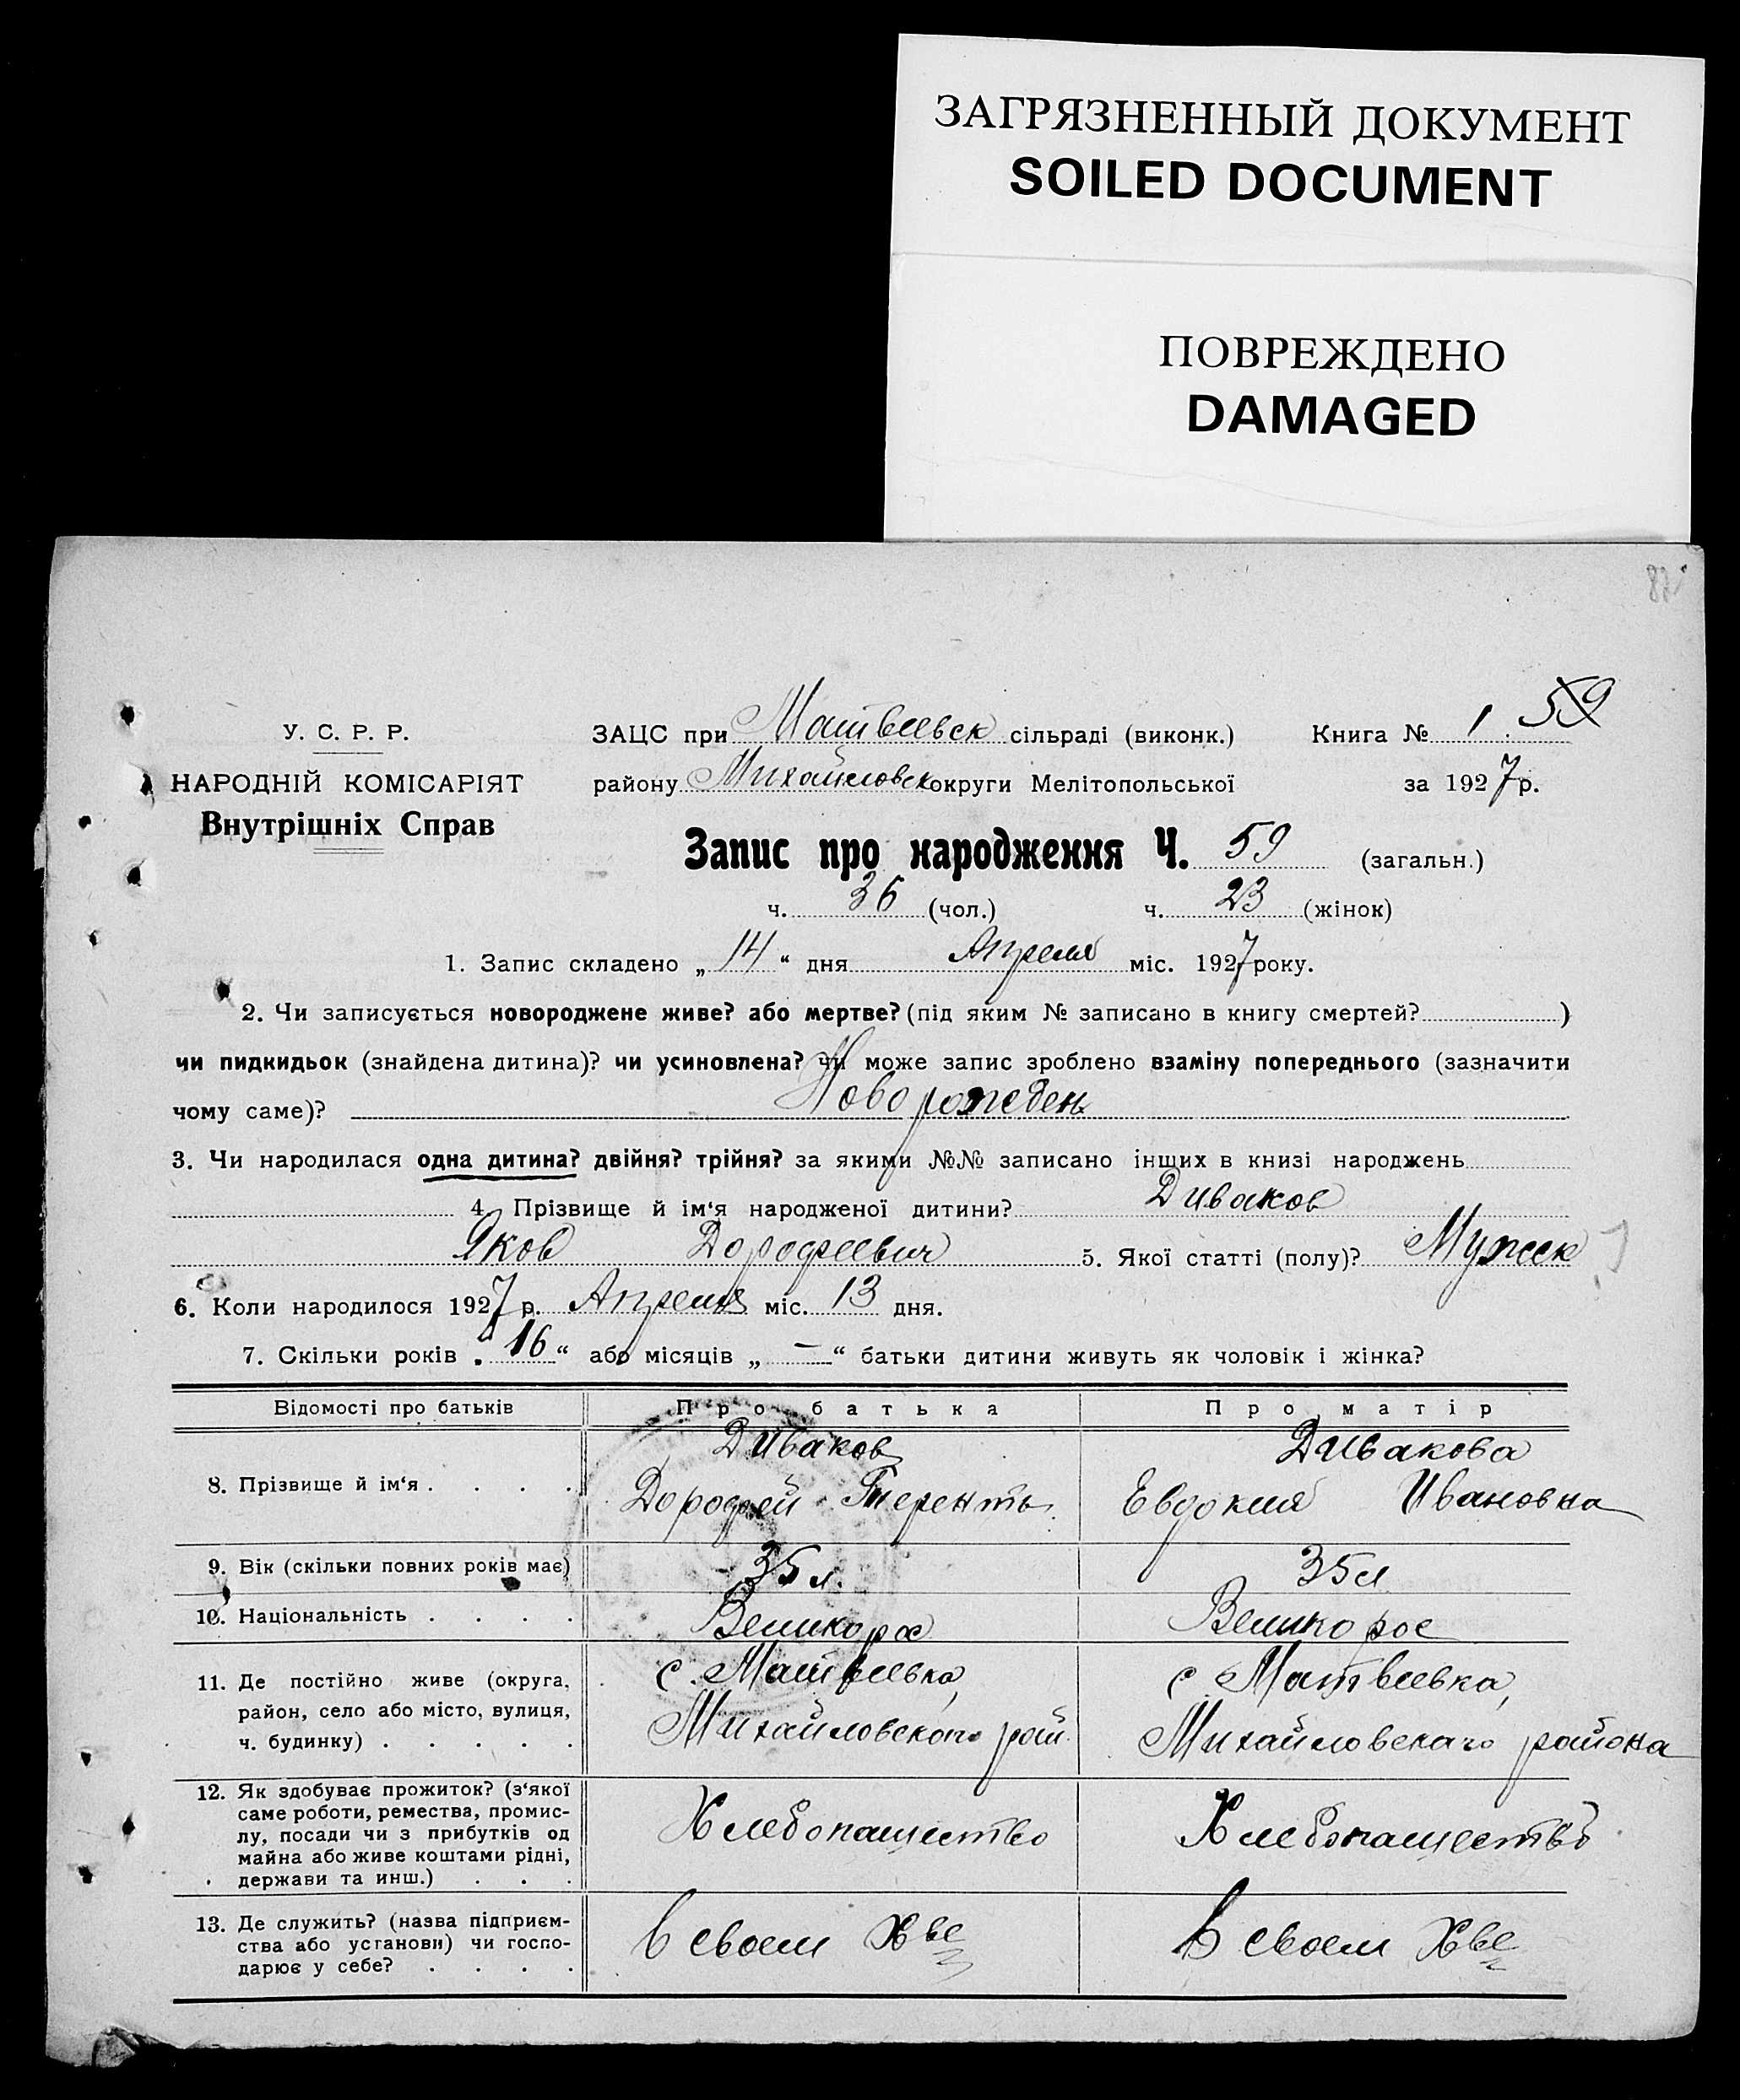 ЗАГРЯЗНЕННЫЙ ДОКУМЕНТ
SOILED DOCUMENT
ПОВРЕЖДЕНО
DAMAGED
59
У. С. Р. Р.
ЗАЦС при Матвеевск сільраді (виконк.) Книга № 1.
НАРОДНІЙ КОМІСАРІЯТ
району Михайловск округи Мелітопольської за 1927 р.
Внутрішніх Справ
Запис про народження Ч. 59 (загальн.)
ч. 36 (чол.) ч. 23 (жінок)
1. Запис складено „ 14 “ дня Апреля міс. 1927 року.
2. Чи записується новороджене живе? або мертве? (під яким № записано в книгу смертей? )
чи пидкидьок (знайдена дитина)? чи усиновлена? чи може запис зроблено взаміну попереднього (зазначити
чому саме)? Новорожден
3. Чи народилася одна дитина? двійня? трійня? за якими №№ записано інших в книзі народжень
4. Прізвище й ім‘я народженої дитини? Диваков
Яков Дорофеевич 5. Якої статті (полу)? Мужск
6. Коли народилося 1927 р. Апреля міс. 13 дня.
7. Скільки років „ 16 “ або місяців „ — “ батьки дитини живуть як чоловік і жінка?
Відомості про батьків Про батька Про матір
8. Прізвище й ім‘я . . . .
Диваков
Дорофей Терент.
Дивакова
Евдокия Ивановна
9. Вік (скільки повних років має) 35 л. 35 л
10. Національність . . . . Великорос Великорос
11. Де постійно живе (округа,
район, село або місто, вулиця,
ч. будинку) . . . . .
с. Матвеевка,
Михайловского рай.
с. Матвеевка,
Михайловскаго района
12. Як здобуває прожиток? (з‘якої
саме роботи, ремества, промис-
лу, посади чи з прибутків од
майна або живе коштами рідні,
держави та инш.) . . .
Хлебопашество
Хлебопашество
13. Де служить? (назва підприєм-
ства або установи) чи госпо-
дарює у себе? . . . .
В своем Хве
В своем Хве